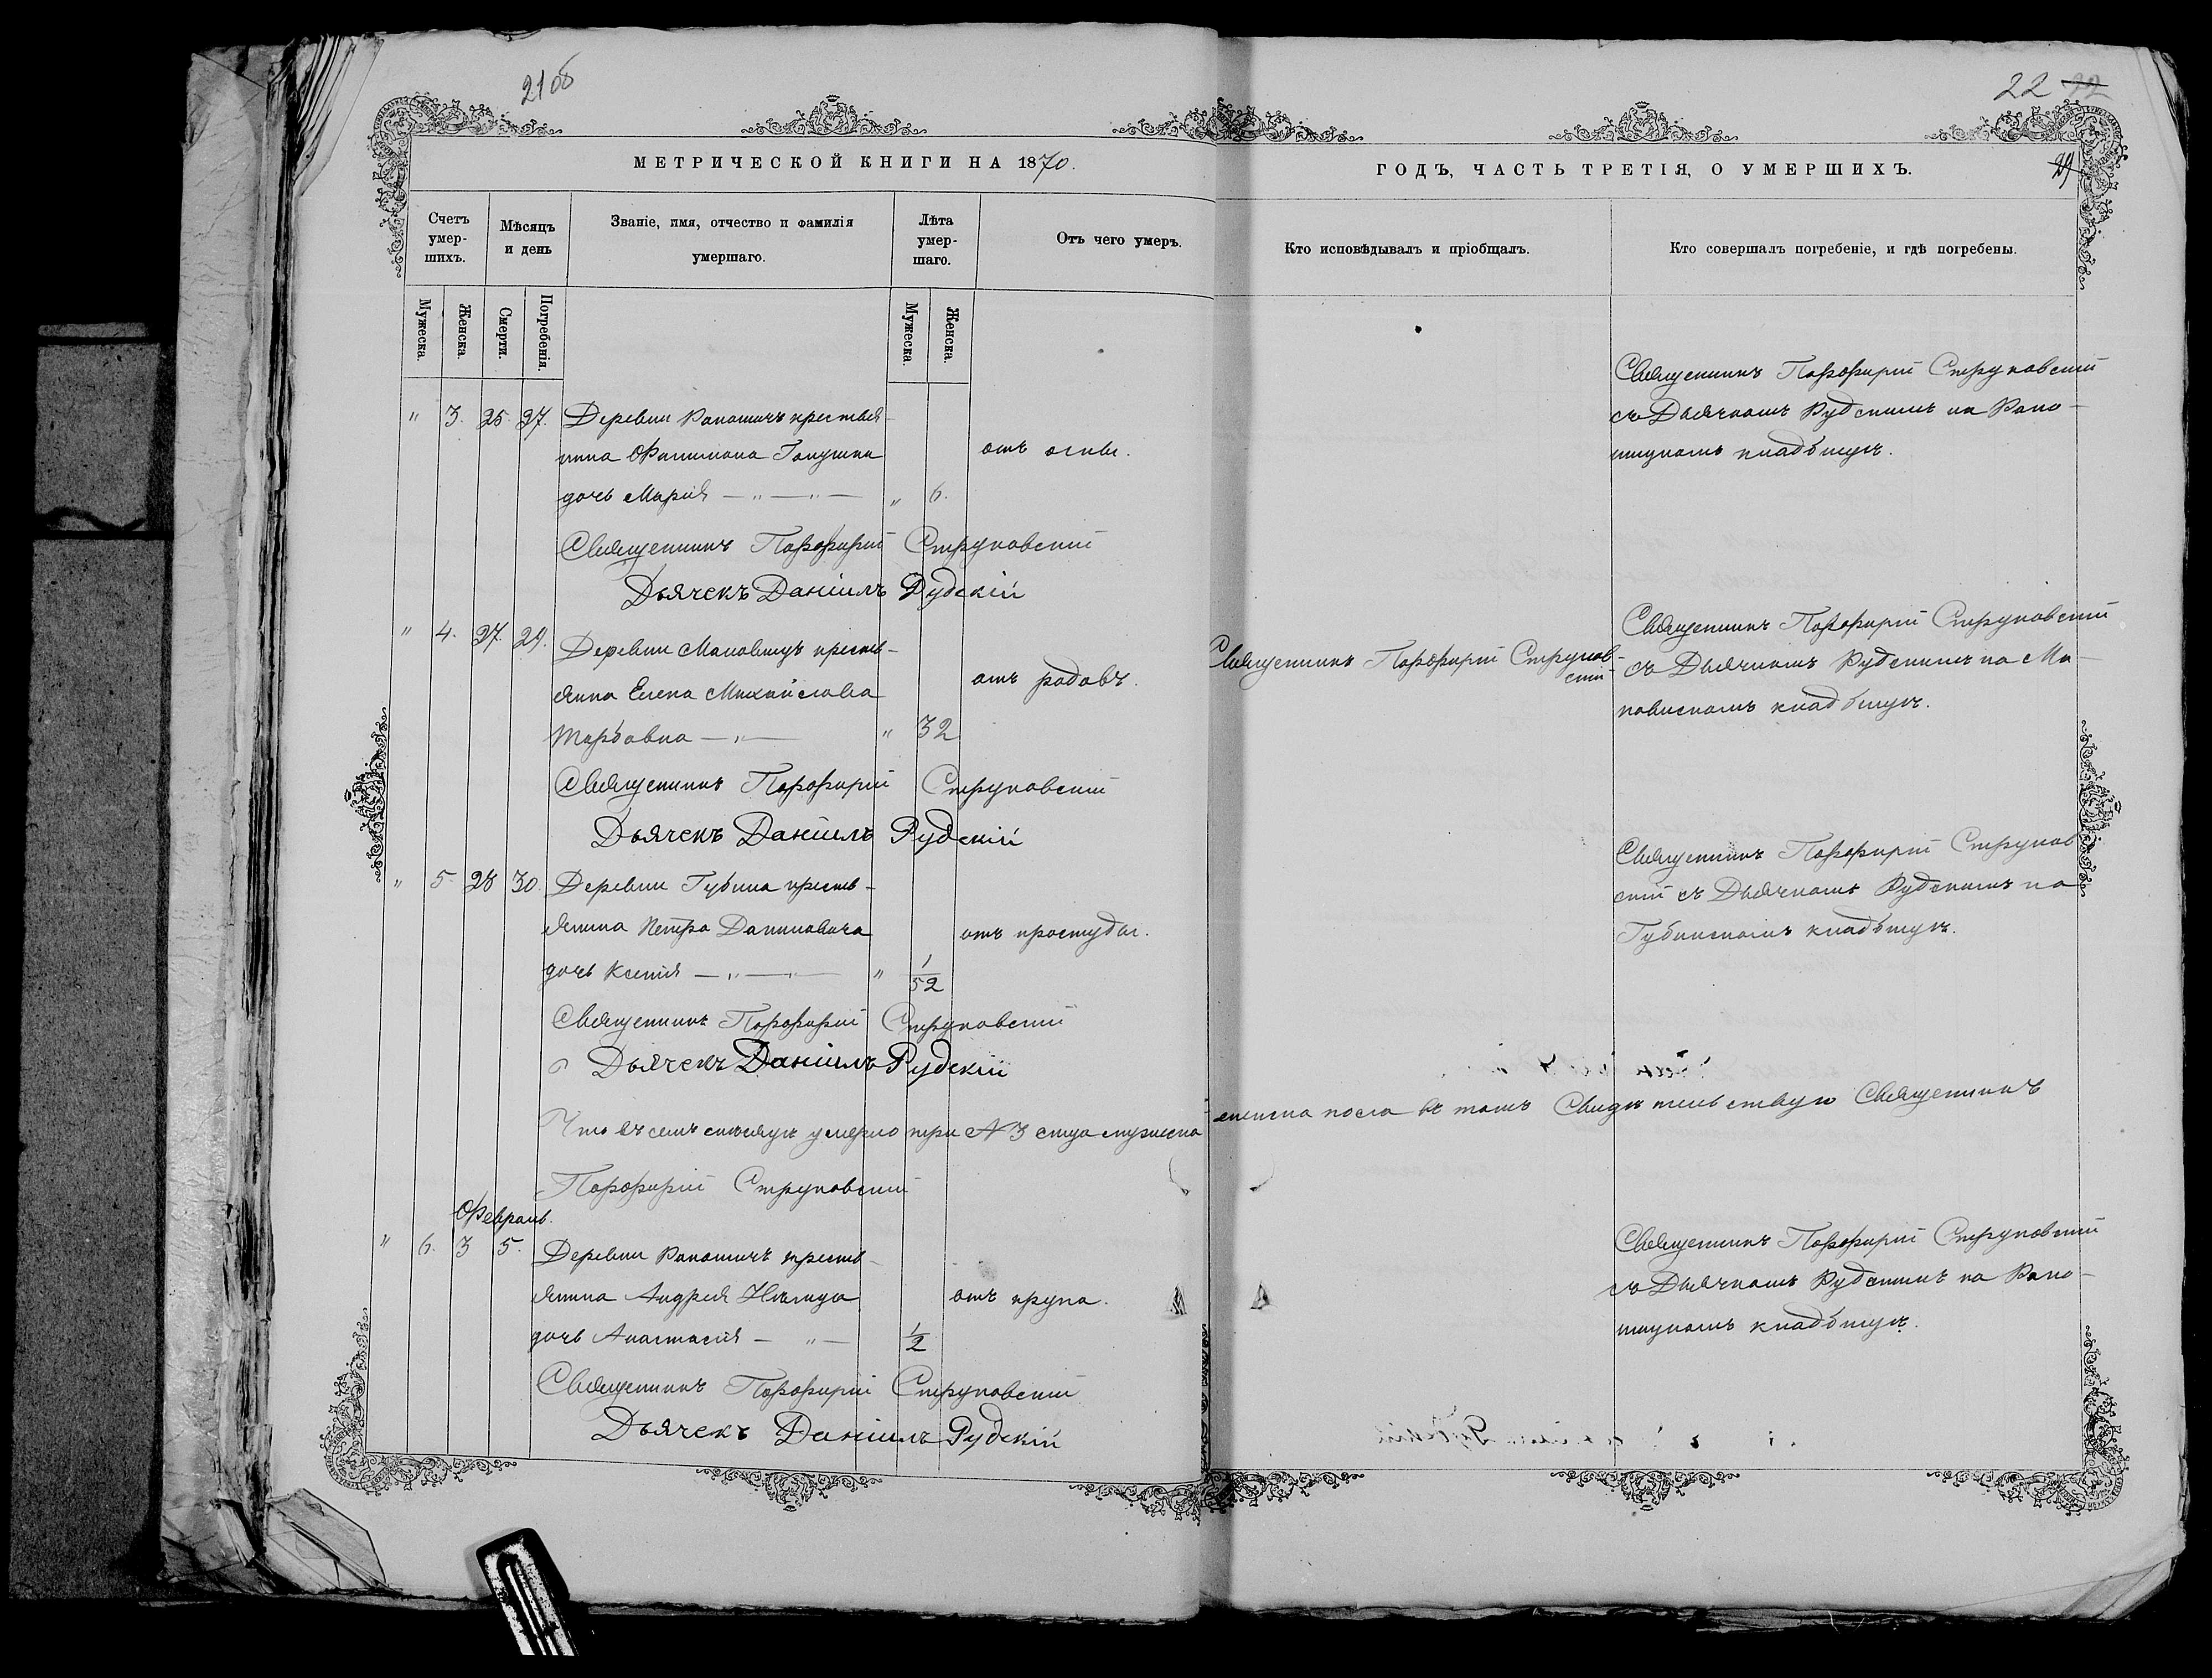 21 об
22 22
МЕТРИЧЕСКОЙ КНИГИ НА 1870.
ГОДЪ, ЧАСТЬ ТРЕТІЯ, О УМЕРШИХЪ.
Счетъ умер-
шихъ.
Мѣсяцъ
и день
Званіе, имя, отчество и фамилія
умершаго.
Лѣта
умер-
шаго.
Отъ чего умеръ.
Кто исповѣдывалъ и пріобщалъ.
Кто совершалъ погребеніе, и гдѣ погребены.
Мужеска.
Женска.
Смерти.
Погребенія.
Мужеска.
Женска.
" 3. 25. 27. Деревни крестья-
нина Филимона
дочь Марія — " — " — " 6.
отъ
Священникъ Порфирій Струковскій
съ Дьячкомъ Рудскимъ на Рапо-
кладбищѣ.
Священникъ Порфирій Струковскій
Дьячекъ Даніилъ Рудскій
" 4. 27. 29. Деревни крестья-
янка Елена Михайлова
— " — " 32
отъ родовъ.
Священникъ Порфирій Струков-
скій
Священникъ Порфирій Струковскій
съ Дьячкомъ Рудскимъ на Ма-
кладбищѣ.
Священникъ Порфирій Струковскій
Дьячекъ Даніилъ Рудскій
" 5. 28 30. Деревни Губина кресть-
янина Петра
дочь Ксенія — " — " — " 1/52
отъ простуды.
Священникъ Порфирій Струков
скій съ Дьячкомъ Рудскимъ на
Губинскомъ кладбищѣ.
Священникъ Порфирій Струковскій
Дьячекъ Даніилъ Рудскій
Что въ семъ мѣсяцѣ умерло три № 3 мужеска
женска пола въ томъ Свидѣтельствую Священникъ
Порфирій Струковскій
Февраль.
" 6. 3 5. Деревни кресть-
янина Андрея
дочь Анастасія — " — 1/2
отъ крупа.
Священникъ Порфирій Струковскій
съ Дьячкомъ Рудскимъ на Рапо-
кладбищѣ.
Священникъ Порфирій Струковскій
Дьячекъ Даніилъ Рудскій